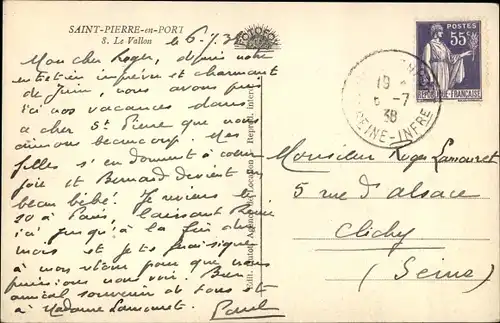 SAINT-PIERRE-en-PORT
8. Le Vallon
le 6.7.38
Mon cher Roger, depuis notre
entretien imprévu et charmant
de Juin, nous avons pris
ici nos vacances dans
ce cher St Pierre que nous
aimons beaucoup. Mes
filles s'en donnent à cœur
joie et Bernard devient un
beau bébé. Je reviens le
10 à Paris, laissant
ici jusqu'à la fin du
mois et je te
à mon retour pour que nous
puissions nous voir. Bien
amical souvenir de tous et
à Madame Lamouret. Paul
POSTES
55c
REPUBLIQUE FRANÇAISE
19
6-7
38
SEINE-INFRE
Monsieur Roger Lamouret
5 rue d'Alsace
Clichy
(Seine)